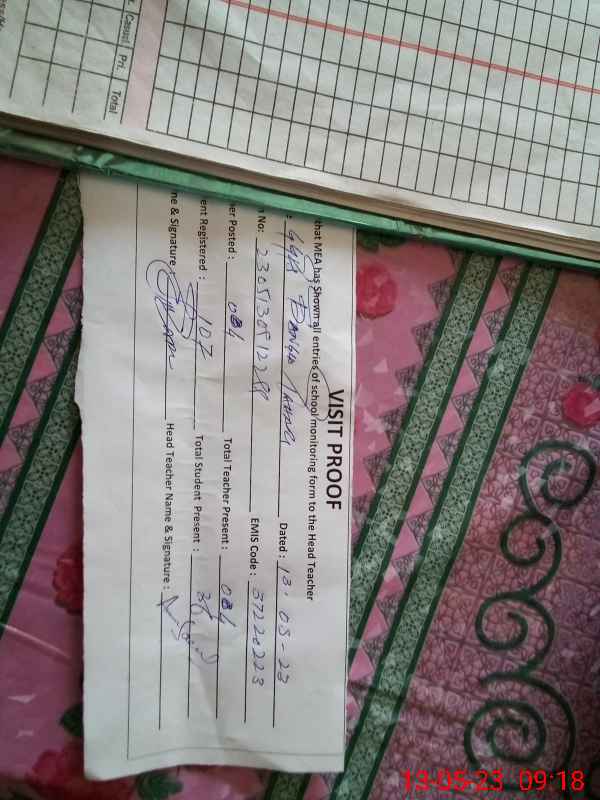 VISIT PROOF
that MEA has Shown all entries of school monitoring form to the Head Teacher
: GGPS Dated : 13-05-23
No: EMIS Code : 37220223
er Posted : 04 Total Teacher Present : 04
ent Registered : 107 Total Student Present :
me & Signature Head Teacher Name & Signature :
Casual Prt. Total
13-05-23 09:18